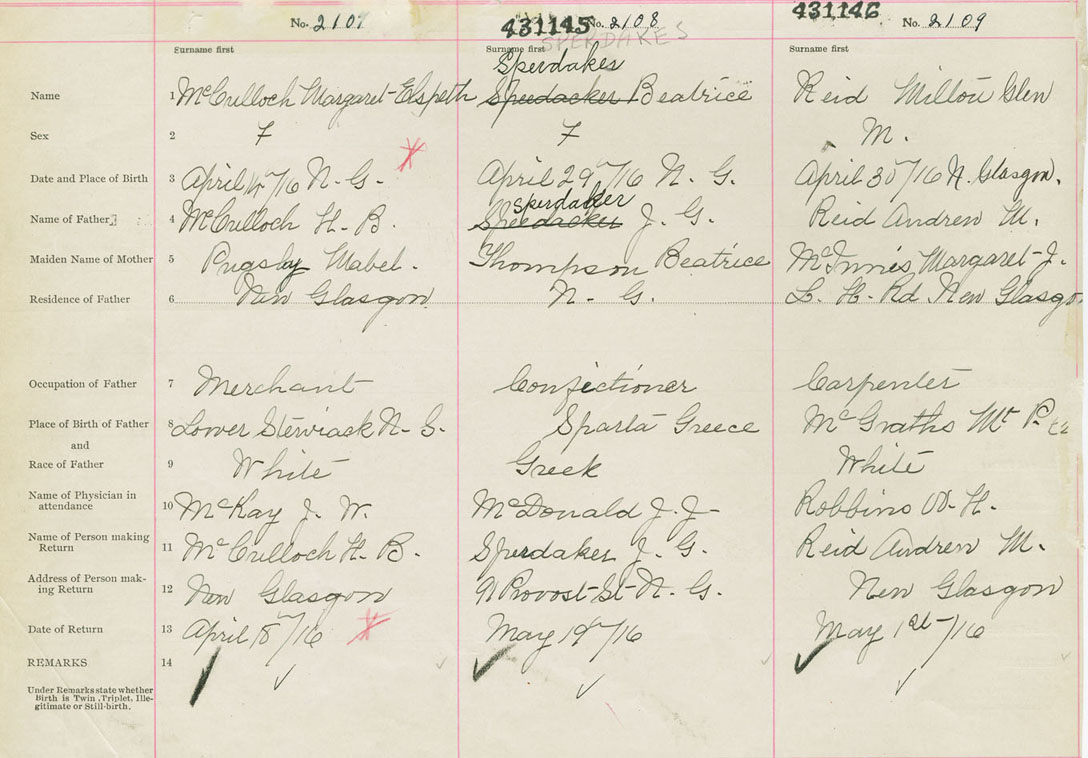 No. 2107 431145 No. 2108 431146 No. 2109
SPERDAKES
Surname first Surname first Surname first
Sperdakes
Name 1 McCulloch Margaret-Elspeth Speedacker Beatrice Reid Milton Glen
Sex 2 F F M.
Date and Place of Birth 3 April /16 N. G. April 29th/16 N. G. April 30th/16 N. Glasgow.
Sperdaker
Name of Father 4 McCulloch H. B. Speedacker J. G. Reid Andrew M.
Maiden Name of Mother 5 Pugsby Mabel. Thompson Beatrice McInnis Margaret-J.
Residence of Father 6 New Glasgow N. G. L. H. Rd. New Glasgo
Occupation of Father 7 Merchant Confectioner Carpenter
Place of Birth of Father 8 Lower Stewiack N. S. Sparta Greece McGraths Mt P.
and
Race of Father 9 White Greek White
Name of Physician in
attendance 10 McKay J. W. McDonald J. J- Robbins H.
Name of Person making
Return 11 McCulloch H. B. Sperdaker J. G. Reid Andrew M.
Address of Person mak-
ing Return 12 New Glasgow Provost-St-N. G. New Glasgow
Date of Return 13 April 18th/16 May 19th/16 May 1st-/16
REMARKS 14
Under Remarks state whether
Birth is Twin, Triplet, Ille-
gitimate or Still-birth.